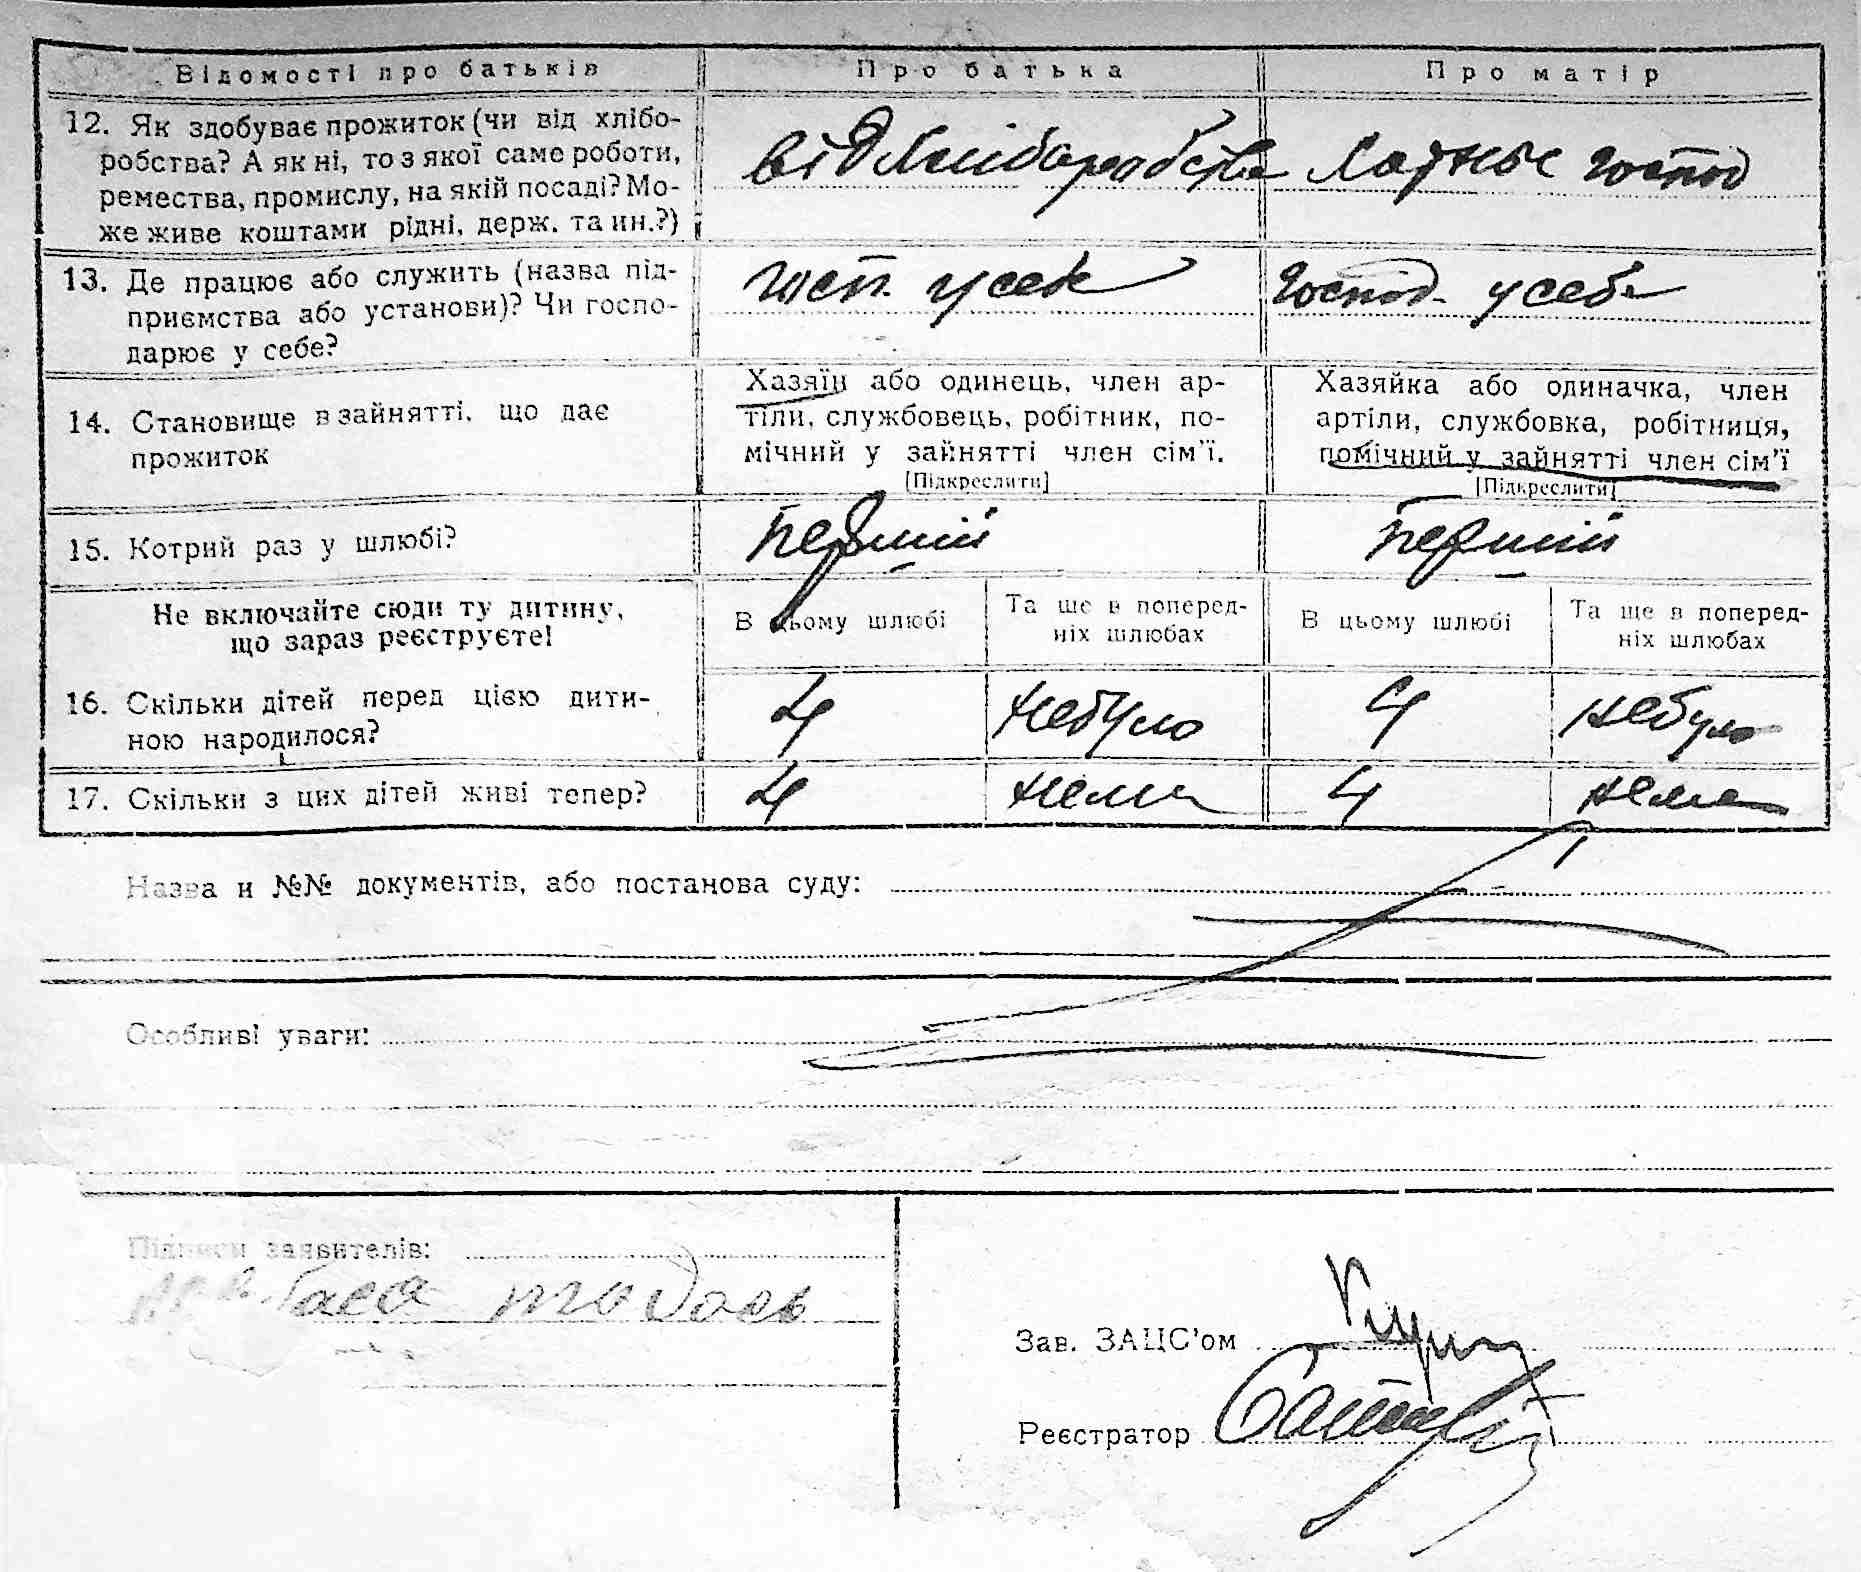 Відомості про батьків Про батька Про матір
12. Як здобуває прожиток (чи від хлібо-
робства? А як ні, то з якої саме роботи,
ремества, промислу, на якій посаді? Мо-
же живе коштами рідні, держ. та ин.?)
від хліборобства хатнье господ
13. Де працює або служить (назва під-
приємства або установи)? Чи госпо-
дарює у себе?
госп. у себе Господ. у себе
14. Становище в зайнятті, що дає
прожиток
Хазяїн або одинець, член ар-
тіли, службовець, робітник, по-
мічний у зайнятті член сім'ї.
[Підкреслити]
Хазяйка або одиначка, член
артіли, службовка, робітниця,
помічний у зайнятті член сім'ї
[Підкреслити]
15. Котрий раз у шлюбі? перший перший
Не включайте сюди ту дитину,
що зараз реєструєте!
В цьому шлюбі Та ще в поперед-
ніх шлюбах
В цьому шлюбі Та ще в поперед-
ніх шлюбах
16. Скільки дітей перед цією дити-
ною народилося?
4 небуло 4 небуло
17. Скільки з цих дітей живі тепер? 4 нема 4 нема
Назва и №№ документів, або постанова суду:
Особливі уваги:
Підписи заявителів:
тодось
Зав. ЗАЦС'ом
Реєстратор